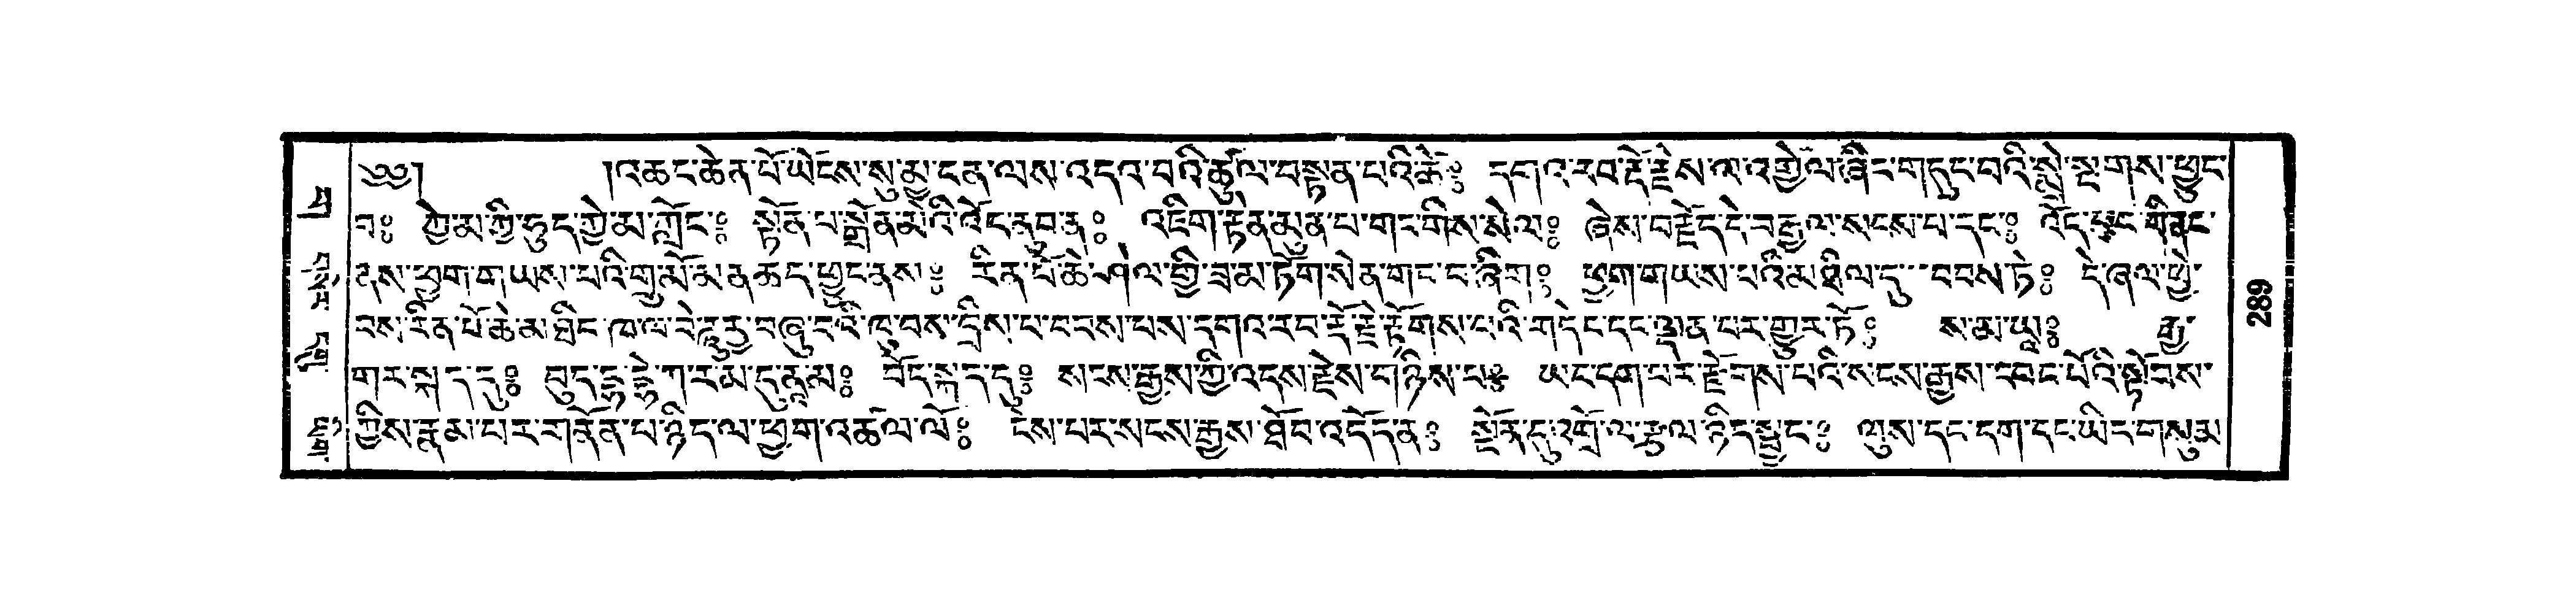 ༄༅། །འཆང་ཆེན་པོ་ཡོངས་སུ་མྱ་ངན་ལས་འདའ་བའི་ཚུལ་བསྟན་པའི་ཚེ༔ དགའ་རབ་རྡོ་རྗེས་ས་ལ་འགྱེལ་ཞིང་གདུང་བའི་སྨྲེ་སྔགས་ཕྱུང་
བ༔ ཀྱེ་མ་ཀྱི་ཧུད་ཀྱེ་མ་ཀློང་༔ སྟོན་པ་སྒྲོན་མེའི་འོད་ནུབ་ན༔ འཇིག་རྟེན་མུན་པ་གང་གིས་སེལ༔ ཞེས་བརྗོད་དེ་བརྒྱལ་སངས་པ་དང་༔ འོད་ཕུང་གི་ནང་
ནས་ཕྱག་གཡས་པའི་གྲུ་མོ་མན་ཆད་ཕྱུང་ནས༔ རིན་པོ་ཆེ་ཤེལ་གྱི་ཟ་མ་ཏོག་སེན་གང་པ་ཞིག༔ ཕྱག་གཡས་པའི་མཐིལ་དུ་བབས་ཏེ༔ དེ་ཞལ་ཕྱེ་
བས་རིན་པོ་ཆེ་མཐིང་ཁ་ལ་བཻ་ཌཱུརྱ་བཞུ་བའི་ཁུ་བས་བྲིས་པ་བབས་པས་དགའ་རབ་རྡོ་རྗེ་རྟོགས་པའི་གདེང་དང་ལྡན་པར་གྱུར་ཏོ༔ ས་མ་ཡཱ༔ རྒྱ་
གར་སྐད་དུ༔ བུད་དྷ་ཧེ་ཀ་ར་མ་དུ་ནཱ་མ༔ བོད་སྐད་དུ༔ སངས་རྒྱས་ཀྱི་འདས་རྗེས་གཉིས་པ༔ ཡང་དག་པར་རྫོགས་པའི་སངས་རྒྱས་དབང་པོའི་སྟོབས་
ཀྱིས་རྣམ་པར་གནོན་པ་ཉིད་ལ་ཕྱག་འཚལ་ལོ༔ ངེས་པར་སངས་རྒྱས་ཐོབ་འདོད་ན༔ སྔོན་དུ་འགྲོ་ལ་རྩལ་ཉིད་སྦྱང་༔ ལུས་དང་ངག་དང་ཡིད་གསུམ་
289